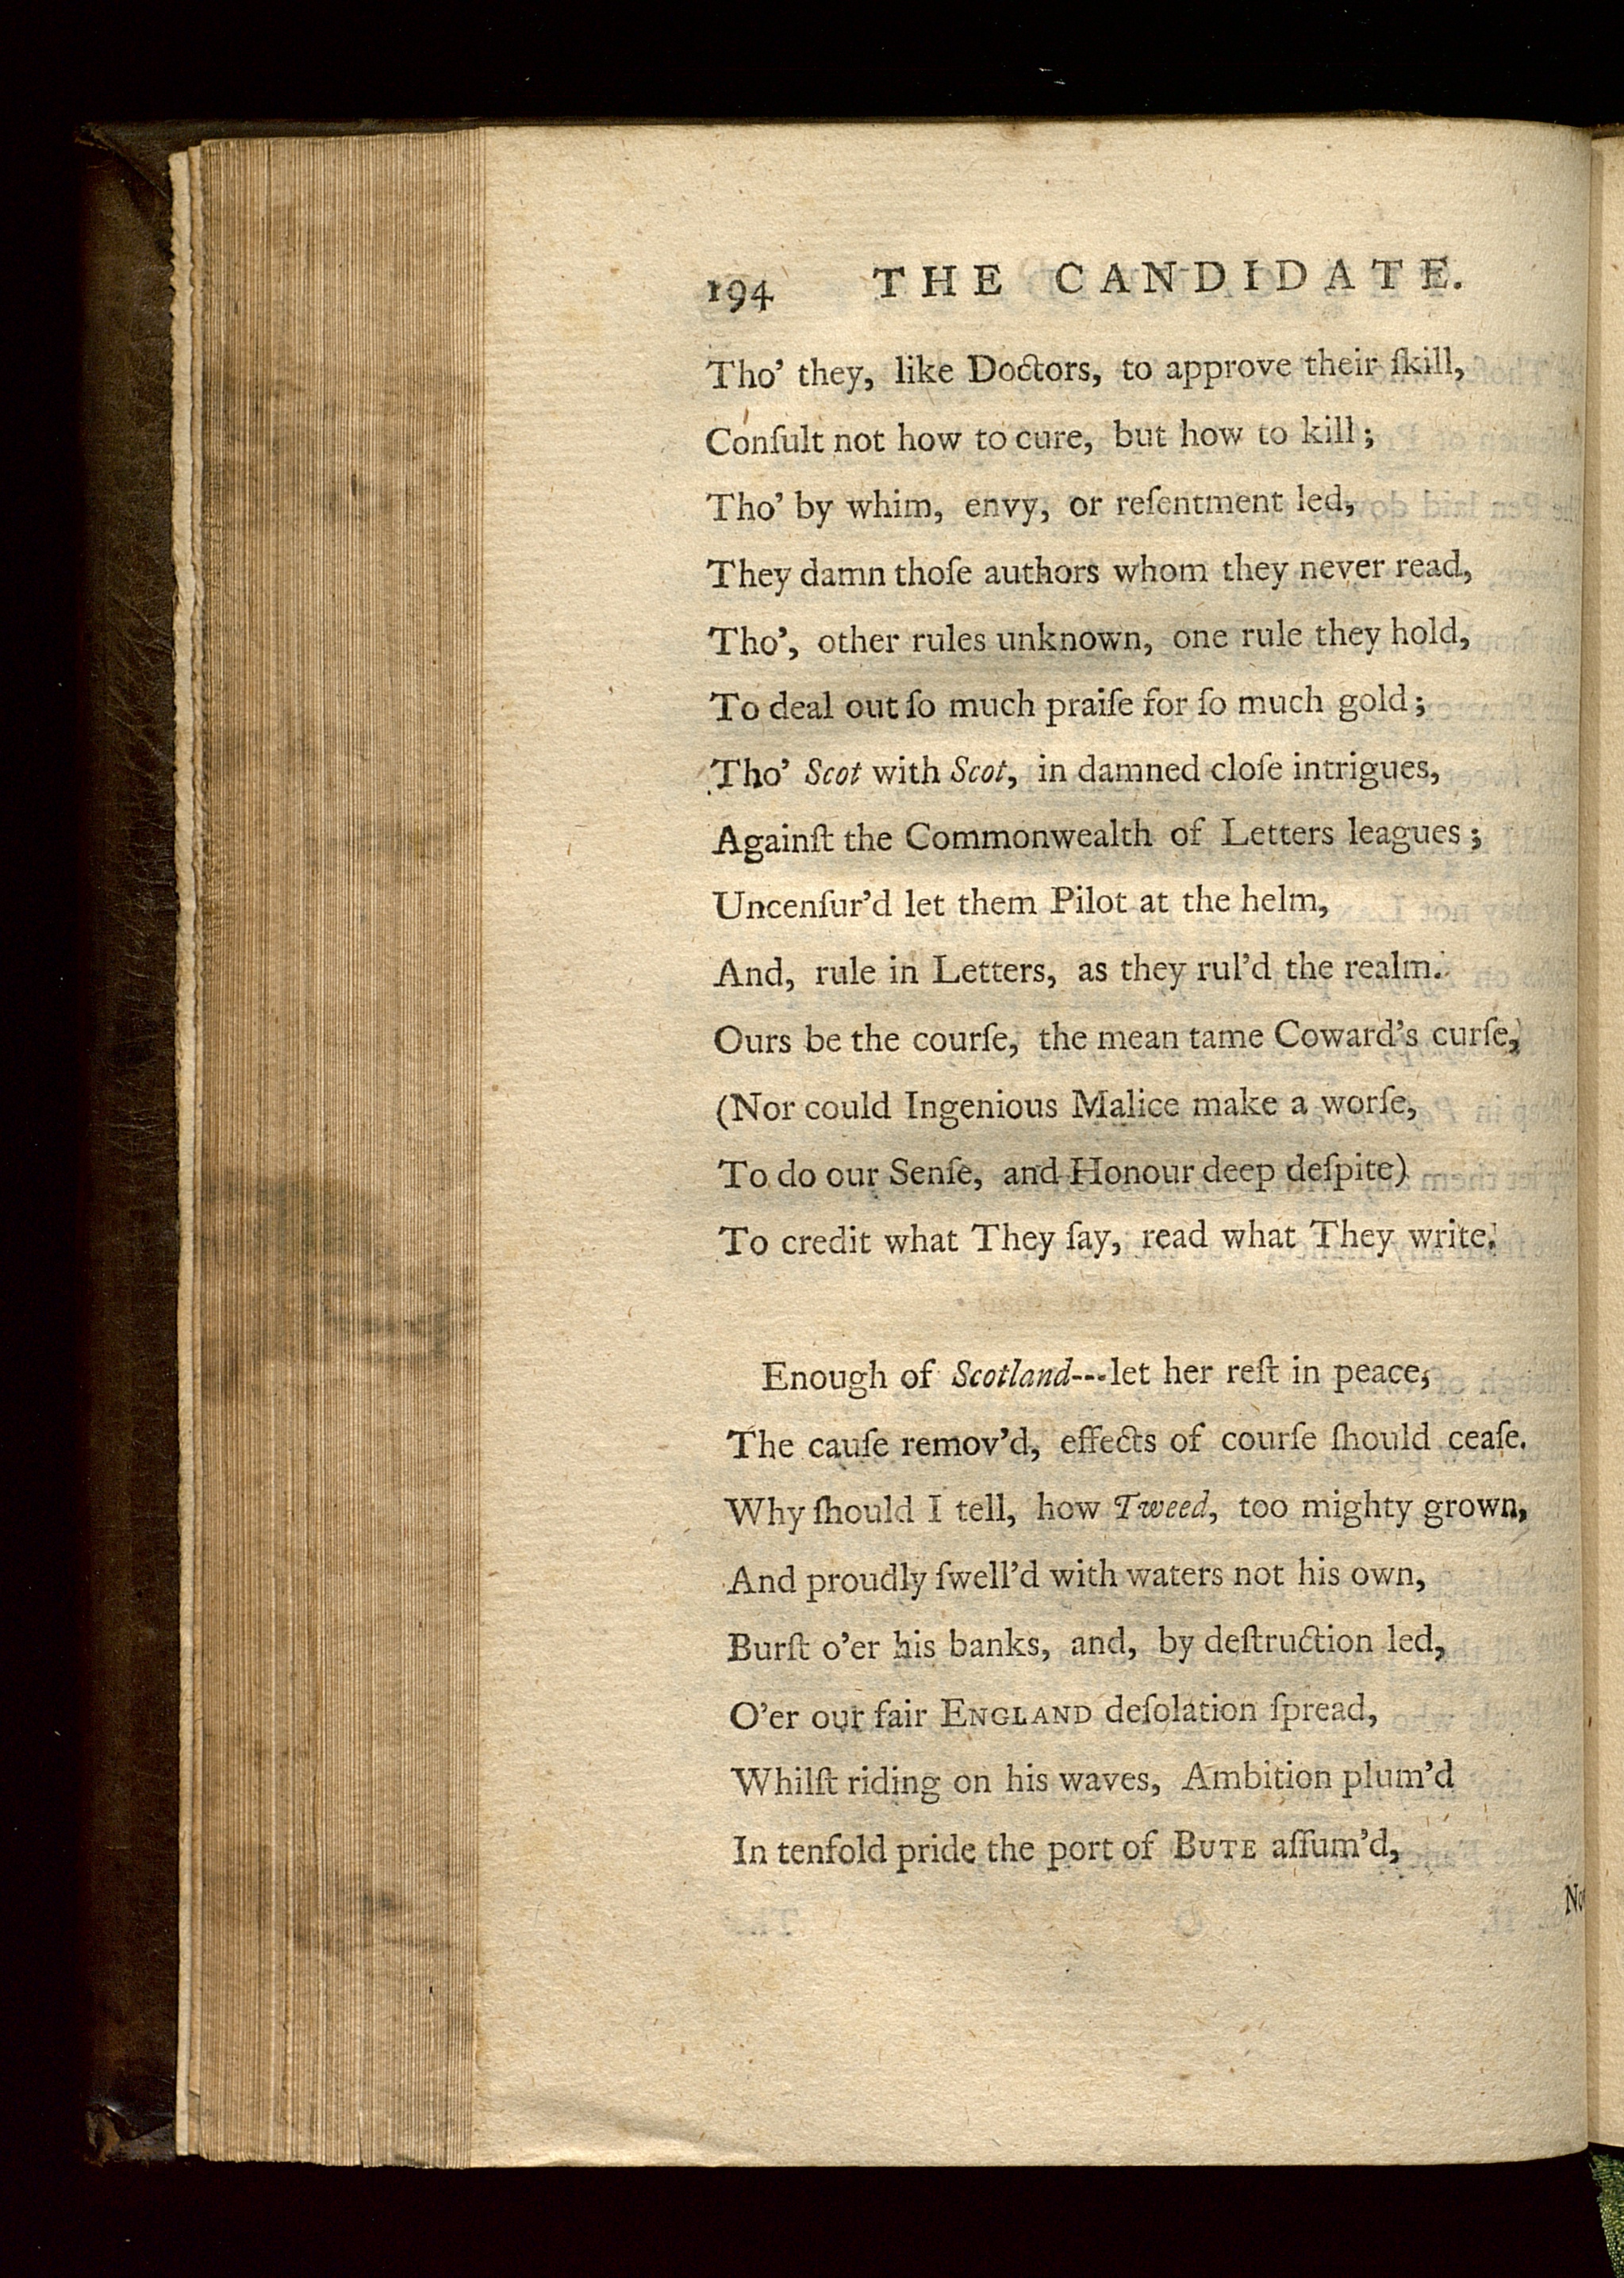 194 THE CANDIDATE.
Tho' they, like Doctors, to approve their ſkill,
Conſult not how to cure, but how to kill;
Tho' by whim, envy, or reſentment led,
They damn thoſe authors whom they never read,
Tho', other rules unknown, one rule they hold,
To deal out ſo much praiſe for ſo much gold;
Tho' Scot with Scot, in damned cloſe intrigues,
Againſt the Commonwealth of Letters leagues;
Uncenſur'd let them Pilot at the helm,
And, rule in Letters, as they rul'd the realm.
Ours be the courſe, the mean tame Coward's curſe,
(Nor could Ingenious Malice make a worſe,
To do our Senſe, and Honour deep deſpite)
To credit what They ſay, read what They write.
Enough of Scotland---let her reſt in peace,
The cauſe remov'd, effects of courſe ſhould ceaſe.
Why ſhould I tell, how Tweed, too mighty grown,
And proudly ſwell'd with waters not his own,
Burſt o'er his banks, and, by deſtruction led,
O'er our fair ENGLAND deſolation ſpread,
Whilſt riding on his waves, Ambition plum'd
In tenfold pride the port of BUTE aſſum'd,